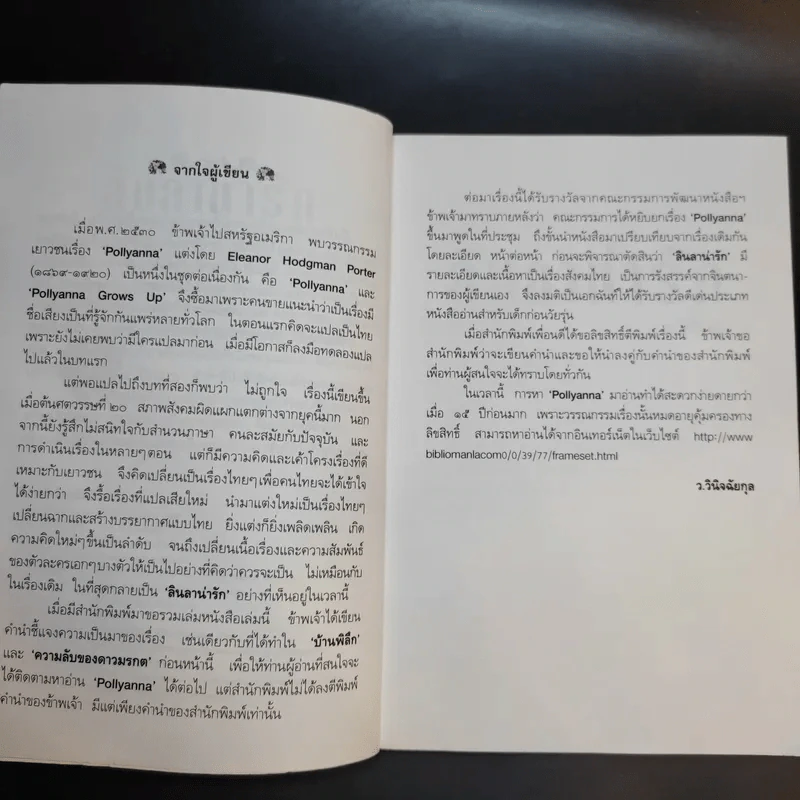 จากใจผู้เขียน
เมื่อพ.ศ.๒๕๓๐ ข้าพเจ้าไปสหรัฐอเมริกา พบวรรณกรรม
เยาวชนเรื่อง 'Pollyanna' แต่งโดย Eleanor Hodgman Porter
(๑๘๖๙-๑๙๒๐) เป็นหนึ่งในชุดต่อเนื่องกัน คือ 'Pollyanna' และ
'Pollyanna Grows Up' จึงซื้อมาเพราะคนขายแนะนำว่าเป็นเรื่องมี
ชื่อเสียงเป็นที่รู้จักกันแพร่หลายทั่วโลก ในตอนแรกคิดจะแปลเป็นไทย
เพราะยังไม่เคยพบว่ามีใครแปลมาก่อน เมื่อมีโอกาสก็ลงมือทดลองแปล
ไปแล้วในบทแรก
แต่พอแปลไปถึงบทที่สองก็พบว่า ไม่ถูกใจ เรื่องนี้เขียนขึ้น
เมื่อต้นศตวรรษที่ ๒๐ สภาพสังคมผิดแผกแตกต่างจากยุคนี้มาก นอก
จากนี้ยังรู้สึกไม่สนิทใจกับสำนวนภาษา คนละสมัยกับปัจจุบัน และ
การดำเนินเรื่องในหลายๆตอน แต่ก็มีความคิดและเค้าโครงเรื่องที่ดี
เหมาะกับเยาวชน จึงคิดเปลี่ยนเป็นเรื่องไทยๆเพื่อคนไทยจะได้เข้าใจ
ได้ง่ายกว่า จึงรื้อเรื่องที่แปลเสียใหม่ นำมาแต่งใหม่เป็นเรื่องไทยๆ
เปลี่ยนฉากและสร้างบรรยากาศแบบไทย ยิ่งแต่งก็ยิ่งเพลิดเพลิน เกิด
ความคิดใหม่ๆขึ้นเป็นลำดับ จนถึงเปลี่ยนเนื้อเรื่องและความสัมพันธ์
ของตัวละครเอกๆบางตัวให้เป็นไปอย่างที่คิดว่าควรจะเป็น ไม่เหมือนกับ
ในเรื่องเดิม ในที่สุดกลายเป็น 'ลินลาน่ารัก' อย่างที่เห็นอยู่ในเวลานี้
เมื่อมีสำนักพิมพ์มาขอรวมเล่มหนังสือเล่มนี้ ข้าพเจ้าได้เขียน
คำนำชี้แจงความเป็นมาของเรื่อง เช่นเดียวกับที่ได้ทำใน 'บ้านพิลึก'
และ 'ความลับของดาวมรกต' ก่อนหน้านี้ เพื่อให้ท่านผู้อ่านที่สนใจจะ
ได้ติดตามหาอ่าน 'Pollyanna' ได้ต่อไป แต่สำนักพิมพ์ไม่ได้ลงตีพิมพ์
คำนำของข้าพเจ้า มีแต่เพียงคำนำของสำนักพิมพ์เท่านั้น
ต่อมาเรื่องนี้ได้รับรางวัลจากคณะกรรมการพัฒนาหนังสือฯ
ข้าพเจ้ามาทราบภายหลังว่า คณะกรรมการได้หยิบยกเรื่อง 'Pollyanna'
ขึ้นมาพูดในที่ประชุม ถึงขั้นนำหนังสือมาเปรียบเทียบจากเรื่องเดิมกัน
โดยละเอียด หน้าต่อหน้า ก่อนจะพิจารณาตัดสินว่า 'ลินลาน่ารัก' มี
รายละเอียดและเนื้อหาเป็นเรื่องสังคมไทย เป็นการรังสรรค์จากจินตนา-
การของผู้เขียนเอง จึงลงมติเป็นเอกฉันท์ให้ได้รับรางวัลดีเด่นประเภท
หนังสืออ่านสำหรับเด็กก่อนวัยรุ่น
เมื่อสำนักพิมพ์เพื่อนดีได้ขอลิขสิทธิ์ตีพิมพ์เรื่องนี้ ข้าพเจ้าขอ
สำนักพิมพ์ว่าจะเขียนคำนำและขอให้นำลงคู่กับคำนำของสำนักพิมพ์
เพื่อท่านผู้สนใจจะได้ทราบโดยทั่วกัน
ในเวลานี้ การหา 'Pollyanna' มาอ่านทำได้สะดวกง่ายดายกว่า
เมื่อ ๑๕ ปีก่อนมาก เพราะวรรณกรรมเรื่องนั้นหมดอายุคุ้มครองทาง
ลิขสิทธิ์ สามารถหาอ่านได้จากอินเทอร์เน็ตในเว็บไซต์ http://www
bibliomanlacom0/0/39/77/frameset.html
ว.วินิจฉัยกุล